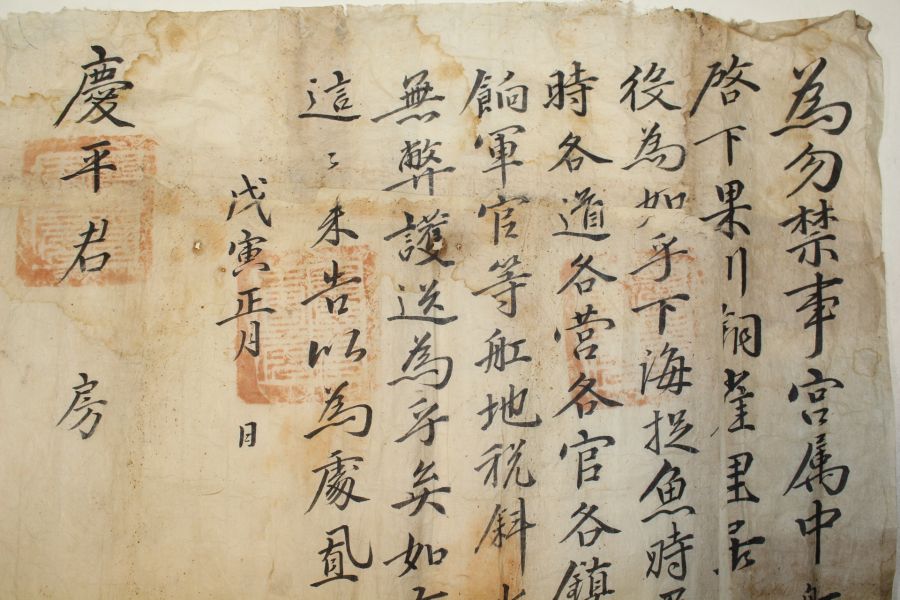 為勿禁事宮属中
啓下果川銅雀里居
役為如乎下海捉魚時
時各道各營各官各鎮
餉軍官等舡地税斜
無弊護送為乎矣如
這〻来告以為處置
戊寅正月 日
慶平君 房